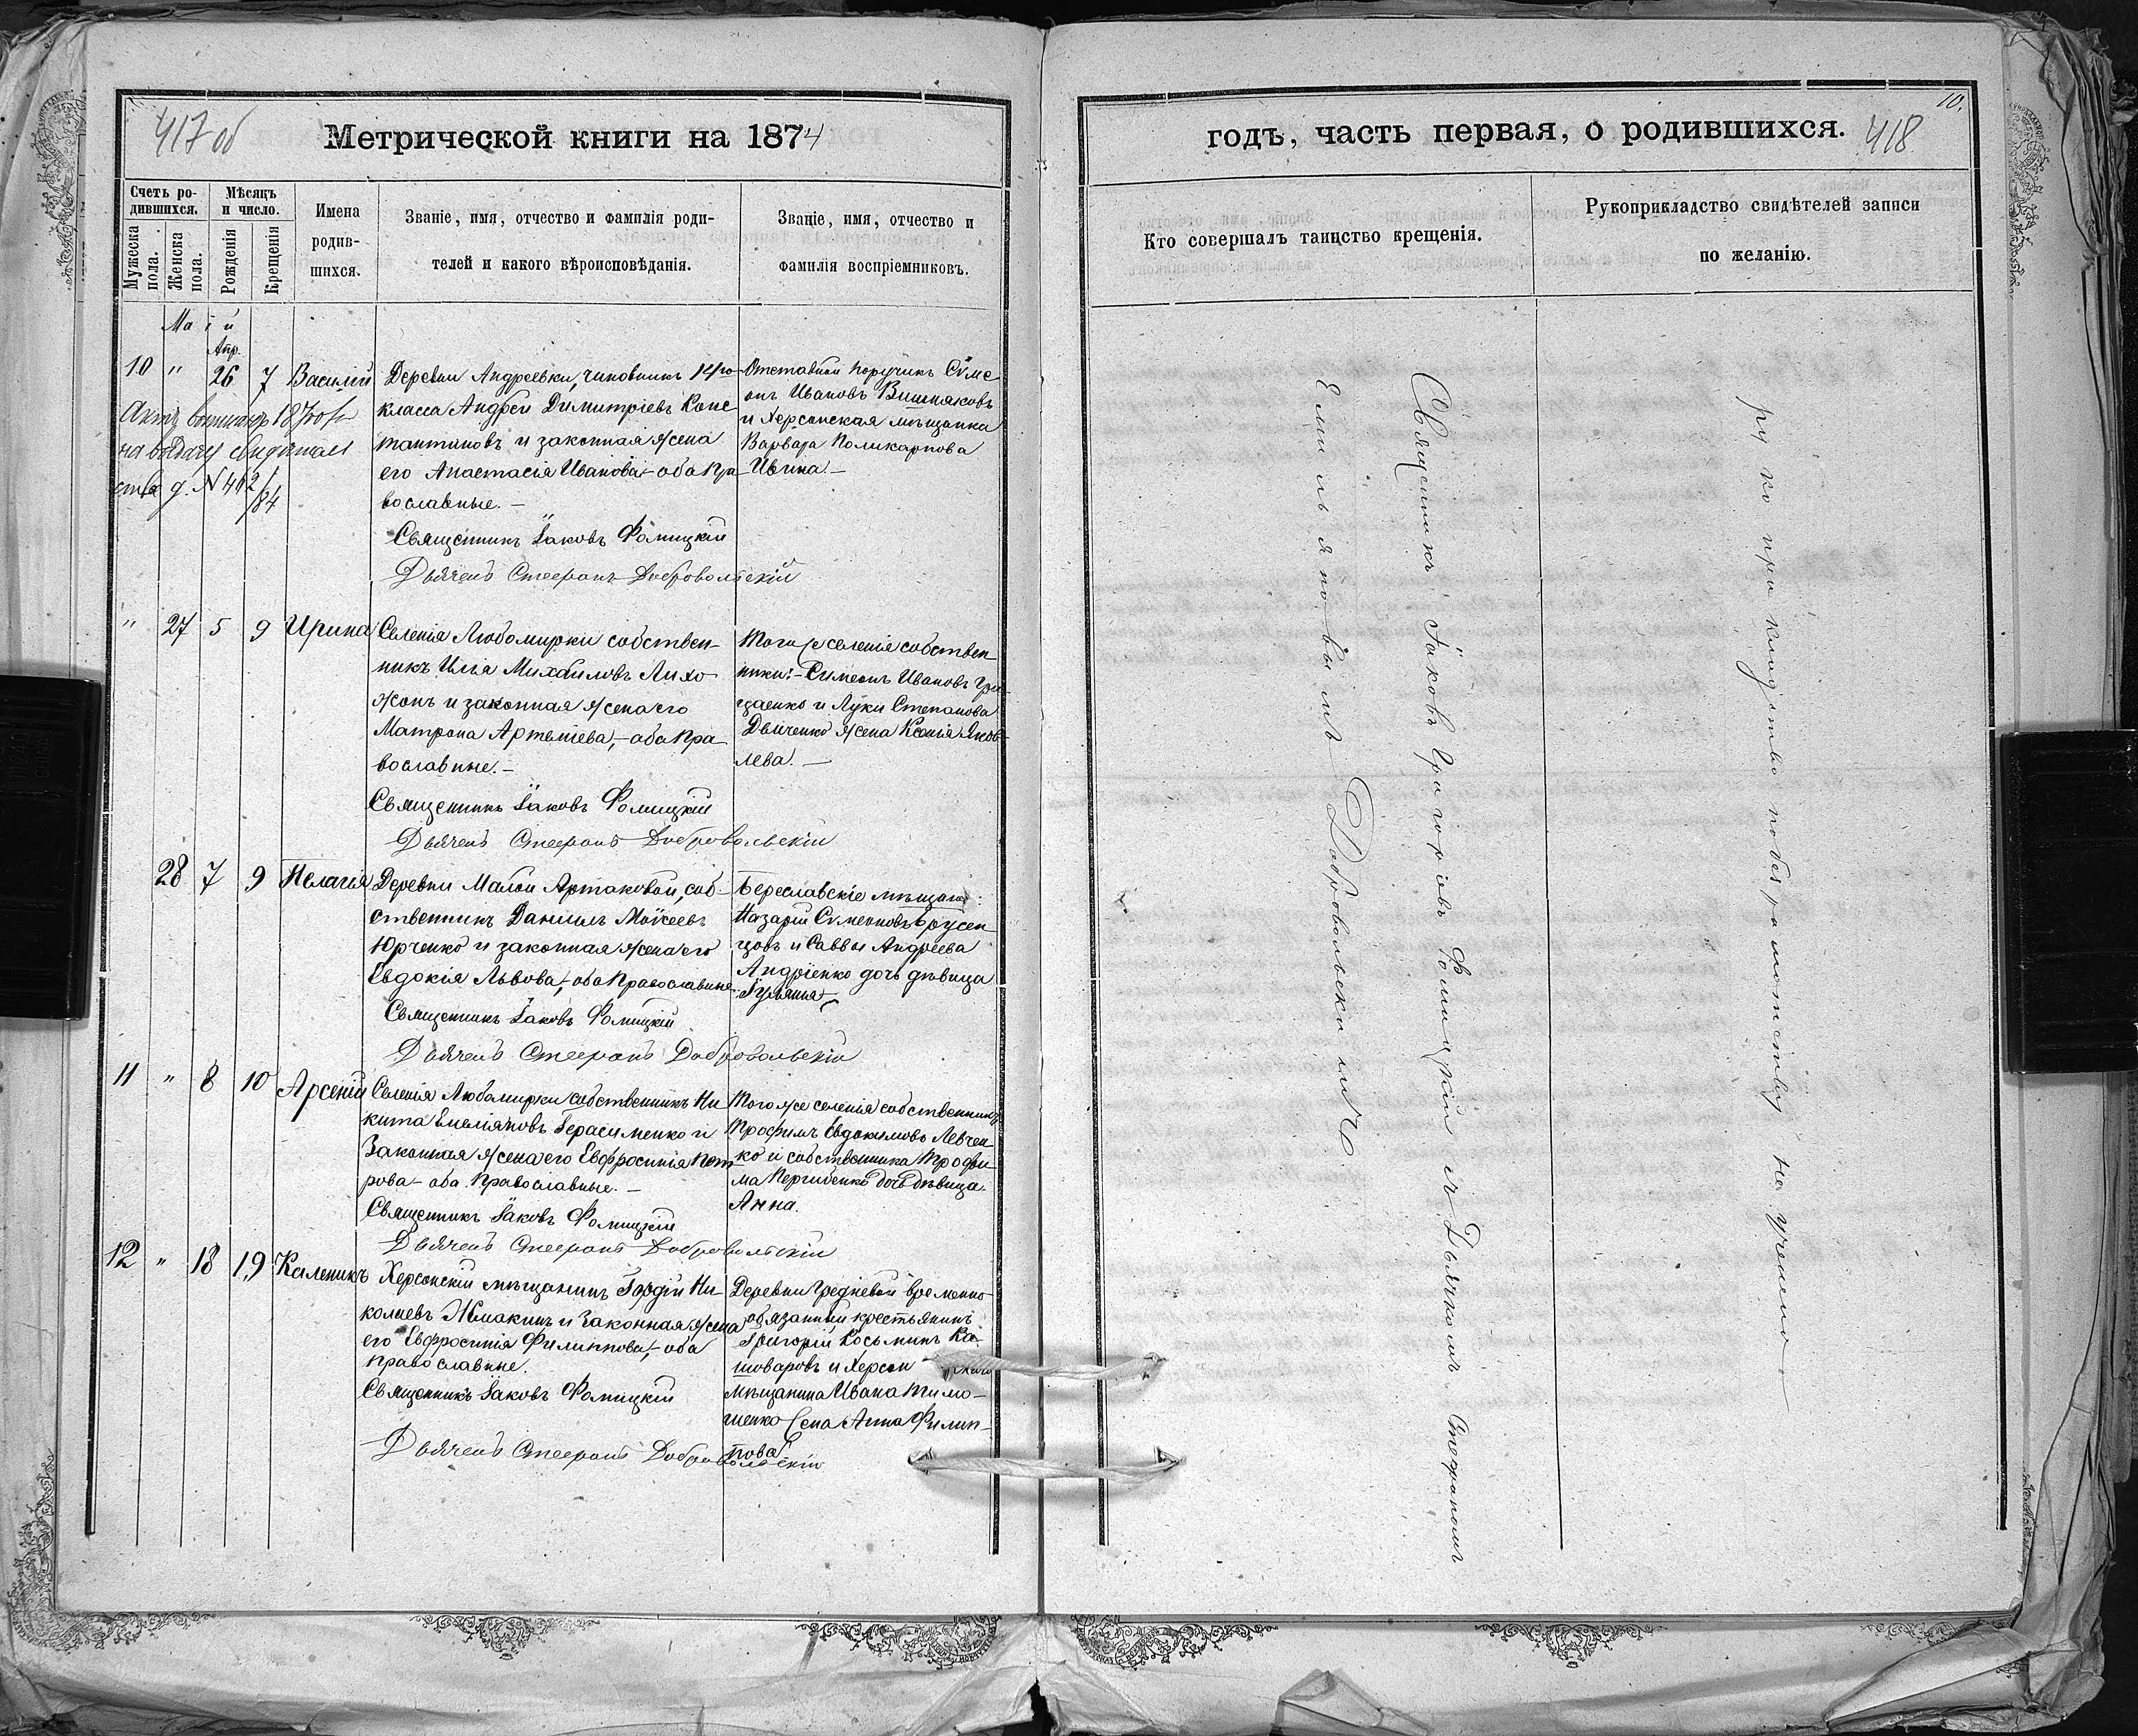 417 об
Метрической книги на 1874
Счетъ ро-
дившихся.
Мужеска
пола.
Женска
пола.
Мѣсяцъ
и число.
Рожденія
Крещенія
Имена
родив-
шихся.
Званіе, имя, отчество и фамилія роди-
телей и какого вѣроисповѣданія.
Званіе, имя, отчество и
фамилія воспріемниковъ.
Маій
Апр.
10 " 26 7 Василій
Деревни Андреевки, чиновникъ 14го
класса Андрей Димитріевъ Конс
тантиновъ и законная жена
его Анастасія Иванова, - оба пра
вославные. -
Священникъ Іаковъ Фомицкій
Дьячекъ Стефанъ Добровольскій
Отставной поручикъ Сѵме
онъ Ивановъ Вишняковъ
и Херсонская мѣщанка
Варвара Поликарпова
Ивина. -
на выдачу свидѣтель
ства д. N 462/84
" 27 5 9 Ирина
Селенія Любомирки собствен-
никъ Илья Михайловъ Лихо
жонъ и законная жена его
Матрона Артеміева, - оба пра
вославные. -
Священникъ Іаковъ Фомицкій
Дьячекъ Стефанъ Добровольскій
Того же селенія собствен
ники: - Симеонъ Ивановъ Гри-
щенко и Луки Степанова
жена Ксенія Яков-
лева. -
28 7 9 Пелагія
Деревни Малой Артаковой, соб-
ственникъ Даніилъ Моисеевъ
Юрченко и законная жена его
Евдокія Львова, - оба православные.
Священникъ Іаковъ Фомицкій
Дьячекъ Стефанъ Добровольскій
Береславскіе мѣщане:
Назарій Сѵмеоновъ Брусен
цовъ и Саввы Андреева
Андріенко дочь дѣвица
Іуліанія -
11 " 8 10 Арсеній
Селенія Любомирки собственникъ Ни
кита Емеліяновъ Герасименко и
Законная жена его Евфросинія Пет
рова - оба Православные. -
Священникъ Іаковъ Фомицкій
Дьячекъ Стефанъ Добровольскій
Того же селенія собственникъ
Трофимъ Евдокимовъ Левчен
ко и собственника Трофи
ма Пергибенко дочь дѣвица
Анна.
12 " 18 19 Каленикъ
Херсонскій мѣщанинъ Гордій Ни
колаевъ Жмакинъ и Законная жена
его Евфросинія Филиппова, - оба
православные.
Священникъ Іаковъ Фомицкій
Дьячекъ Стефанъ Добровольскій
Деревни временно-
обязанный крестьянинъ
Григорій Косьминъ Ка-
шоваровъ и Херсонскаго
мѣщанина Ивана Тимо-
шенко жена Анна Филип-
пова
10.
годъ, часть первая, о родившихся. 418
Кто совершалъ таинство крещенія.
Рукоприкладство свидѣтелей записи
по желанію.
Священникъ Іаковъ Григоріевъ Фомицкій съ Дьячкомъ Стефаномъ
Емельяновымъ Добровольскимъ
рукоприкладство по безграмотству не учинено